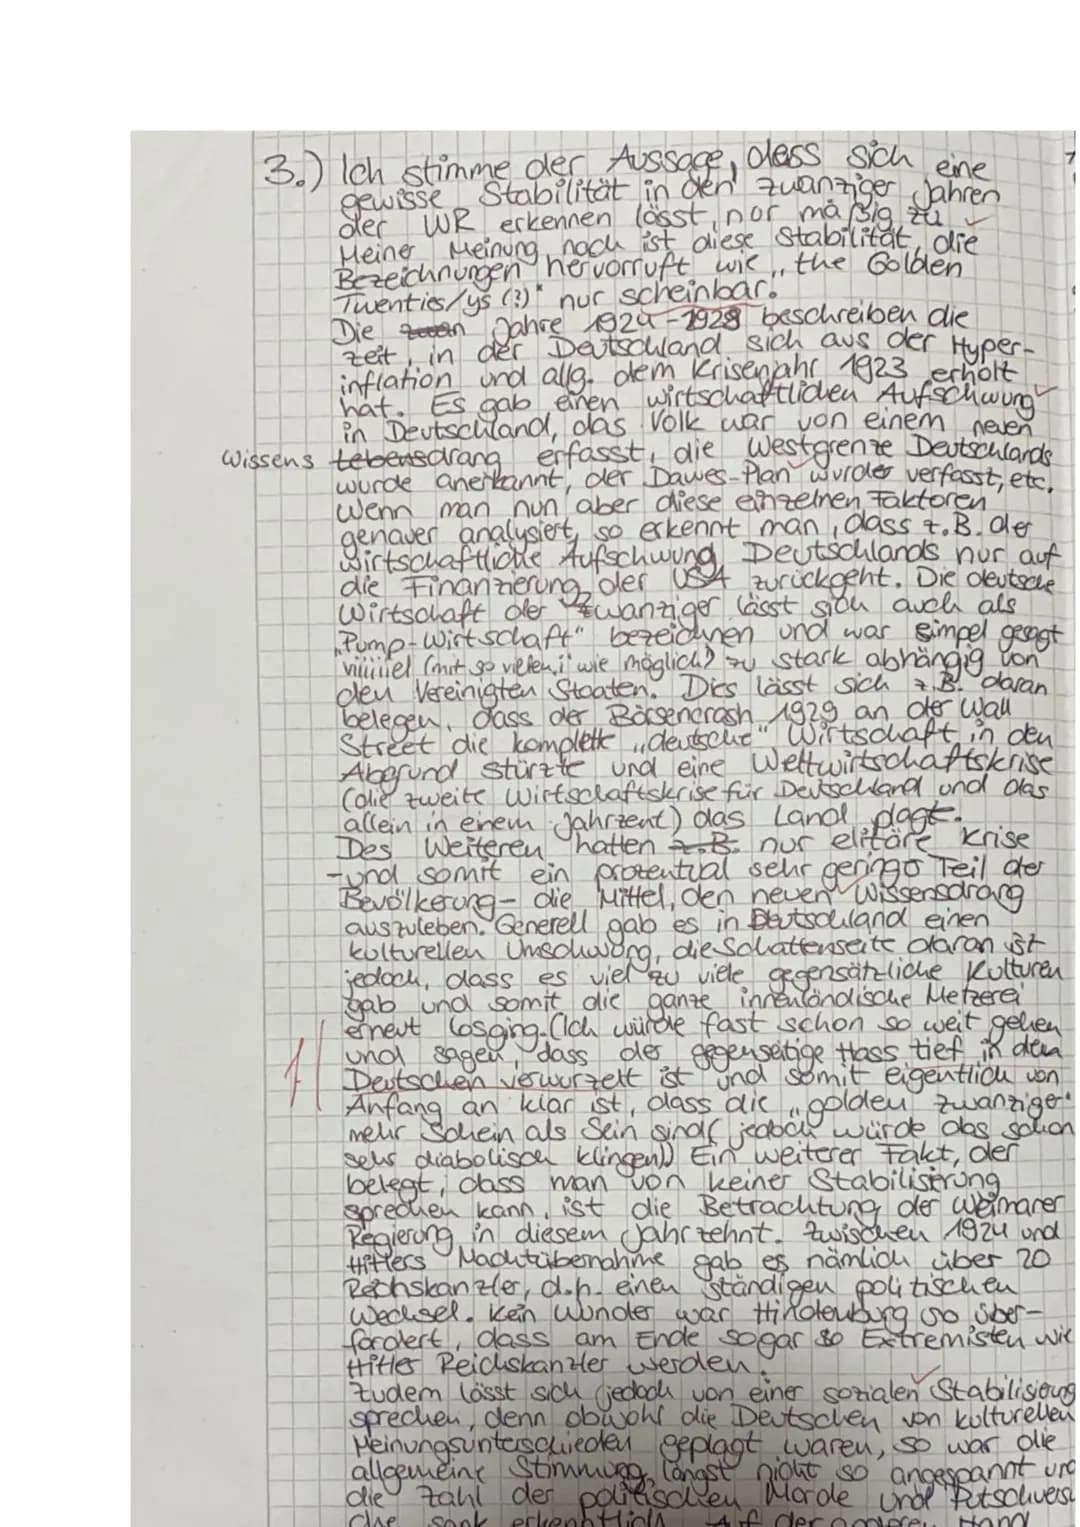 3.) Ich stimme der Aussage, dass sich eine
gewisse Stabilität in den zwanziger Jahren
der WR erkennen lässt, nur mäßig zu
Meiner Meinung nach ist diese Stabilität, die
Bezeichnungen hervorruft wie "the Golden
Twenties/ys (?)" nur scheinbar.
Die Jahre 1924-1929 beschreiben die
Zeit, in der Deutschland sich aus der Hyper-
inflation und allg. dem Krisenjahr 1923 erholt
hat. Es gab einen wirtschaftlichen Aufschwung
in Deutschland, das Volk war von einem neuen
Wissens Lebensdrang erfasst, die Westgrenze Deutschlands
wurde anerkannt, der Dawes-Plan wurde verfasst, etc.
Wenn man nun aber diese einzelnen Faktoren
genauer analysiert, so erkennt man, dass z.B. der
wirtschaftliche Aufschwung Deutschlands nur auf
die Finanzierung der USA zurückgeht. Die deutsche
Wirtschaft der Zwanziger lässt sich auch als
"Pump-Wirtschaft" bezeichnen und war simpel gesagt
viiiiiel (mit so vielen i wie möglich) zu stark abhängig von
den Vereinigten Staaten. Dies lässt sich z.B. daran
belegen, dass der Börsencrash 1929 an der Wall
Street die komplett "deutsche" Wirtschaft in den
Abgrund stürzte und eine Weltwirtschaftskrise
(die zweite Wirtschaftskrise für Deutschland und das
allein in einem Jahrzent) das Land plagt.
Des Weiteren hatten z.B. nur elitäre Krise
-und somit ein prozentual sehr geringo Teil der
Bevölkerung- die Mittel, den neuen Wissensdrang
auszuleben. Generell gab es in Deutschland einen
kulturellen Umschwung, die Schattenseite daran ist
jedoch, dass es viel zu viele gegensätzliche Kulturen
gab und somit die ganze innenländische Metzerei
erneut losging. (Ich würde fast schon so weit gehen
und sagen, dass der gegenseitige Hass tief in den
Deutschen verwurzelt ist und somit eigentlich von
Anfang an klar ist, dass die "golden zwanziger"
mehr Schein als Sein sind( jedoch würde das schon
sehr diabolisch klingen)) Ein weiterer Fakt, der
belegt, dass man von keiner Stabilisierung
sprechen kann, ist die Betrachtung der Weimarer
Regierung in diesem Jahrzehnt. Zwischen 1924 und
Hitlers Machtübernahme gab es nämlich über 20
Reichskanzler, d.h. einen ständigen politischen
Wechsel. Kein Wunder war Hindenburg so über-
fordert, dass am Ende sogar so Extremisten wie
Hitler Reichskanzler werden.
Zudem lässt sich jedoch von einer sozialen Stabilisierung
sprechen, denn obwohl die Deutschen von kulturellen
Meinungsunterschieden geplagt waren, so war die
allgemeine Stimmung längst nicht so angespannt und
die Zahl der politischen Morde und Putschversu
che sank erkenntlich. Auf der anderen Hand